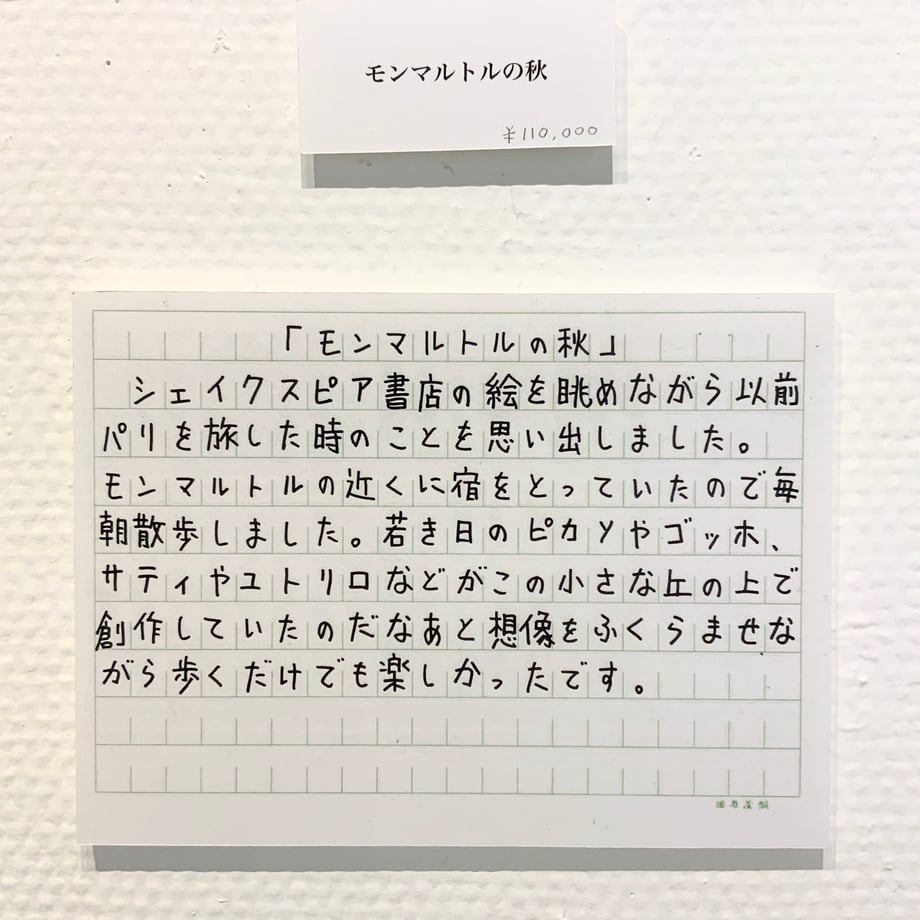 モンマルトルの秋
¥110,000
「モンマルトルの秋」
シェイクスピア書店の絵を眺めながら以前
パリを旅した時のことを思い出しました。
モンマルトルの近くに宿をとっていたので毎
朝散歩しました。若き日のピカソやゴッホ、
サティやユトリロなどがこの小さな丘の上で
創作していたのだなあと想像をふくらませな
がら歩くだけでも楽しかったです。